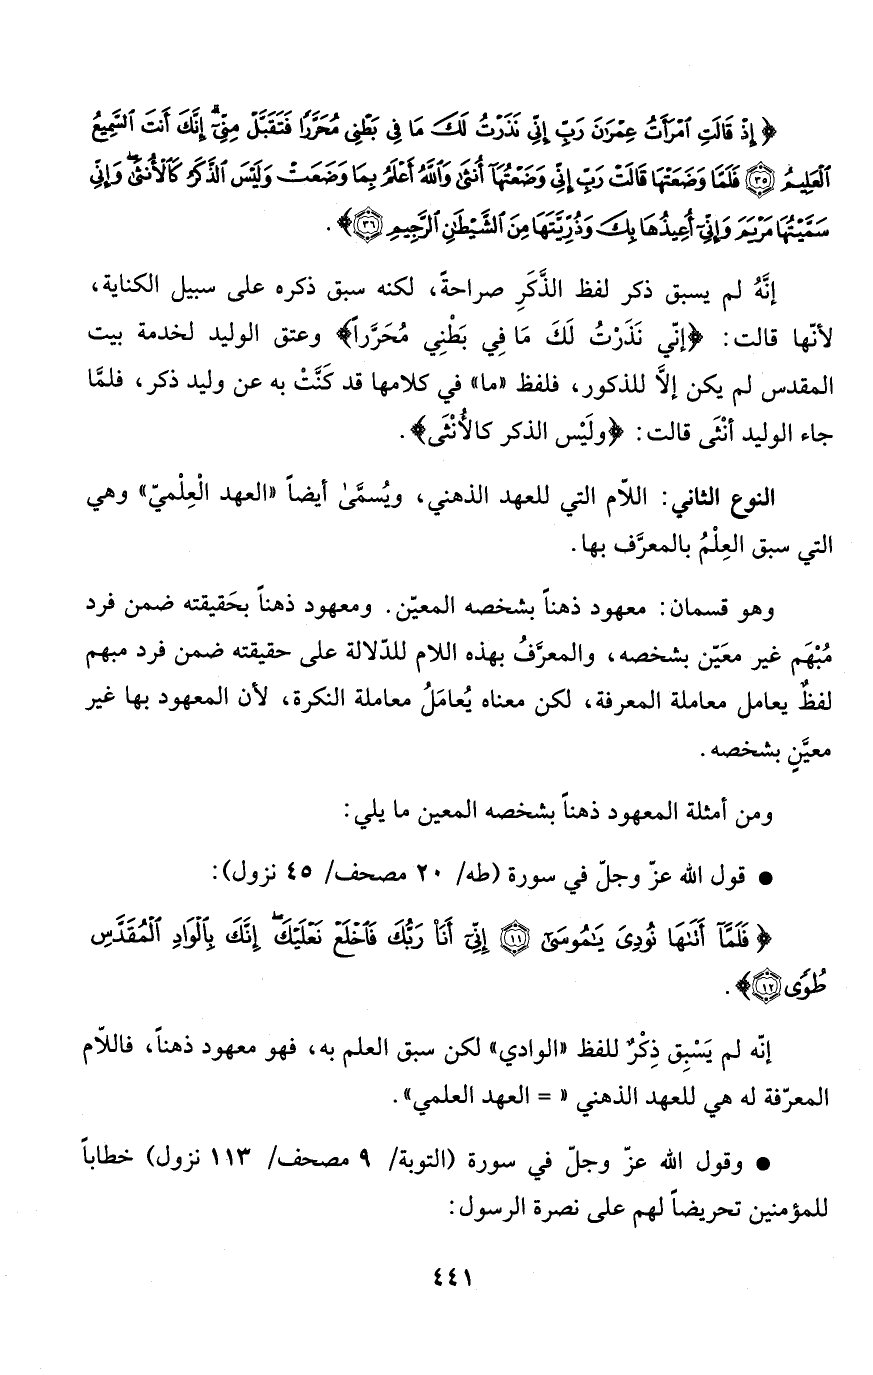 ﴿إِذْ قَالَتِ ٱمْرَأَتُ عِمْرَٰنَ رَبِّ إِنِّى نَذَرْتُ لَكَ مَا فِى بَطْنِى مُحَرَّرًا فَتَقَبَّلْ مِنِّىٓ ۖ إِنَّكَ أَنتَ ٱلسَّمِيعُ
ٱلْعَلِيمُ ٣٥ فَلَمَّا وَضَعَتْهَا قَالَتْ رَبِّ إِنِّى وَضَعْتُهَآ أُنثَىٰ وَٱللَّهُ أَعْلَمُ بِمَا وَضَعَتْ وَلَيْسَ ٱلذَّكَرُ كَٱلْأُنثَىٰ ۖ وَإِنِّى
سَمَّيْتُهَا مَرْيَمَ وَإِنِّىٓ أُعِيذُهَا بِكَ وَذُرِّيَّتَهَا مِنَ ٱلشَّيْطَٰنِ ٱلرَّجِيمِ ٣٦﴾.
إنَّهُ لم يسبق ذكر لفظ الذَّكَرِ صراحةً، لكنه سبق ذكره على سبيل الكناية،
لأنّها قالت: ﴿إنّي نَذَرْتُ لَكَ مَا فِي بَطْنِي مُحَرَّراً﴾ وعتق الوليد لخدمة بيت
المقدس لم يكن إلاَّ للذكور، فلفظ «ما» في كلامها قد كَنَّتْ به عن وليد ذكر، فلمَّا
جاء الوليد أنْثَى قالت: ﴿ولَيْس الذكر كالأُنْثَى﴾.
النوع الثاني: اللاّم التي للعهد الذهني، ويُسمَّىٰ أيضاً «العهد الْعِلْميّ» وهي
التي سبق العِلْمُ بالمعرَّف بها.
وهو قسمان: معهود ذهناً بشخصه المعيّن. ومعهود ذهناً بحَقيقته ضمن فرد
مُبْهَم غير معَيّن بشخصه، والمعرَّفُ بهذه اللام للدّلالة على حقيقته ضمن فرد مبهم
لفظٌ يعامل معاملة المعرفة، لكن معناه يُعامَلُ معاملة النكرة، لأن المعهود بها غير
معيَّنٍ بشخصه.
ومن أمثلة المعهود ذهناً بشخصه المعين ما يلي:
● قول الله عزّ وجلّ في سورة (طه/ ٢٠ مصحف/ ٤٥ نزول):
﴿فَلَمَّآ أَتَىٰهَا نُودِىَ يَٰمُوسَىٰٓ ١١ إِنِّىٓ أَنَا۠ رَبُّكَ فَٱخْلَعْ نَعْلَيْكَ ۖ إِنَّكَ بِٱلْوَادِ ٱلْمُقَدَّسِ
طُوًى ١٢﴾.
إنّه لم يَسْبِق ذِكْرٌ للفظ «الوادي» لكن سبق العلم به، فهو معهود ذهناً، فاللاّم
المعرّفة له هي للعهد الذهني « = العهد العلمي».
● وقول الله عزّ وجلّ في سورة (التوبة/ ٩ مصحف/ ١١٣ نزول) خطاباً
للمؤمنين تحريضاً لهم على نصرة الرسول:
٤٤١